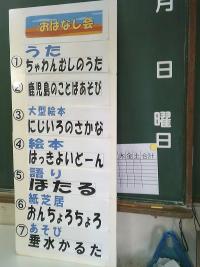 おはなし会
うた
① ちゃわんむしのうた
② 鹿児島のことばあそび
大型絵本
③ にじいろのさかな
絵本
④ はっきよいどーん
語り
⑤ ほたる
紙芝居
⑥ おんちょろちょろ
あそび
⑦ 垂水かるた
月
日
曜日
木金土合計